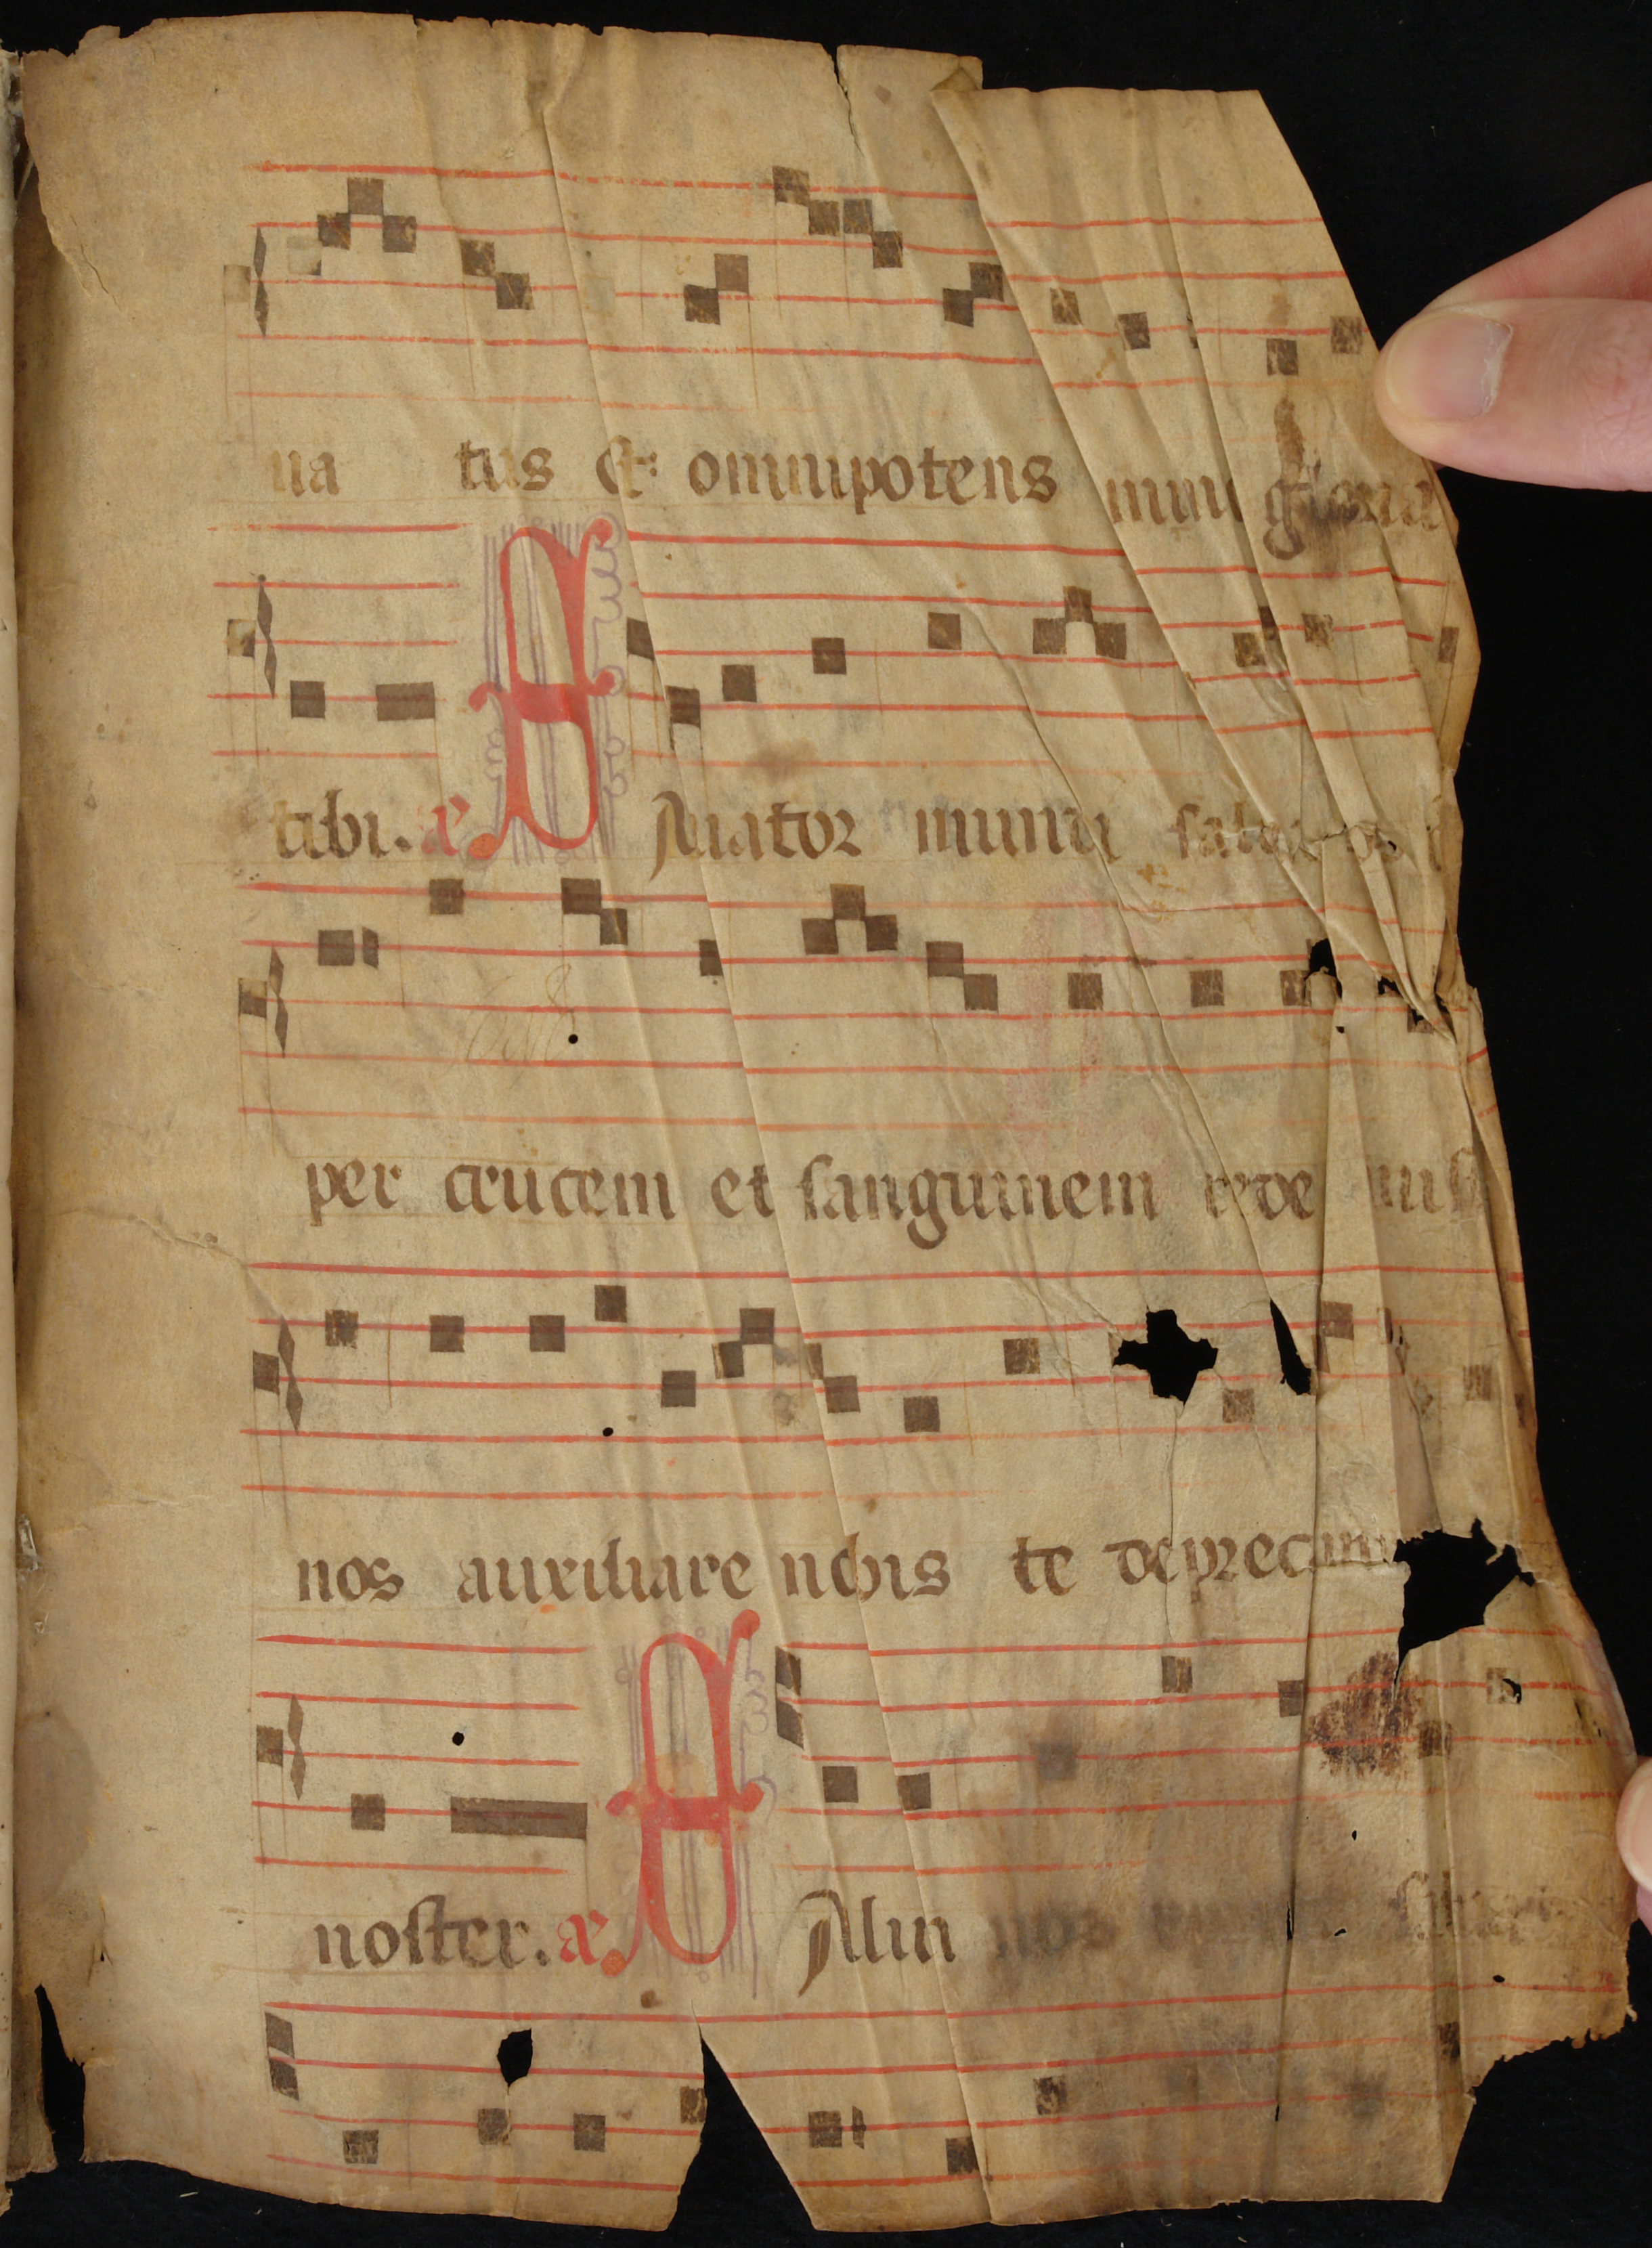 na tus &: omnipotens mim gloria
tibi. æ S Aluator mundi salua nos
per crucem et sanguinem rede mis
nos auxiliare nobis te deprecam
noster. æ S Alua nos